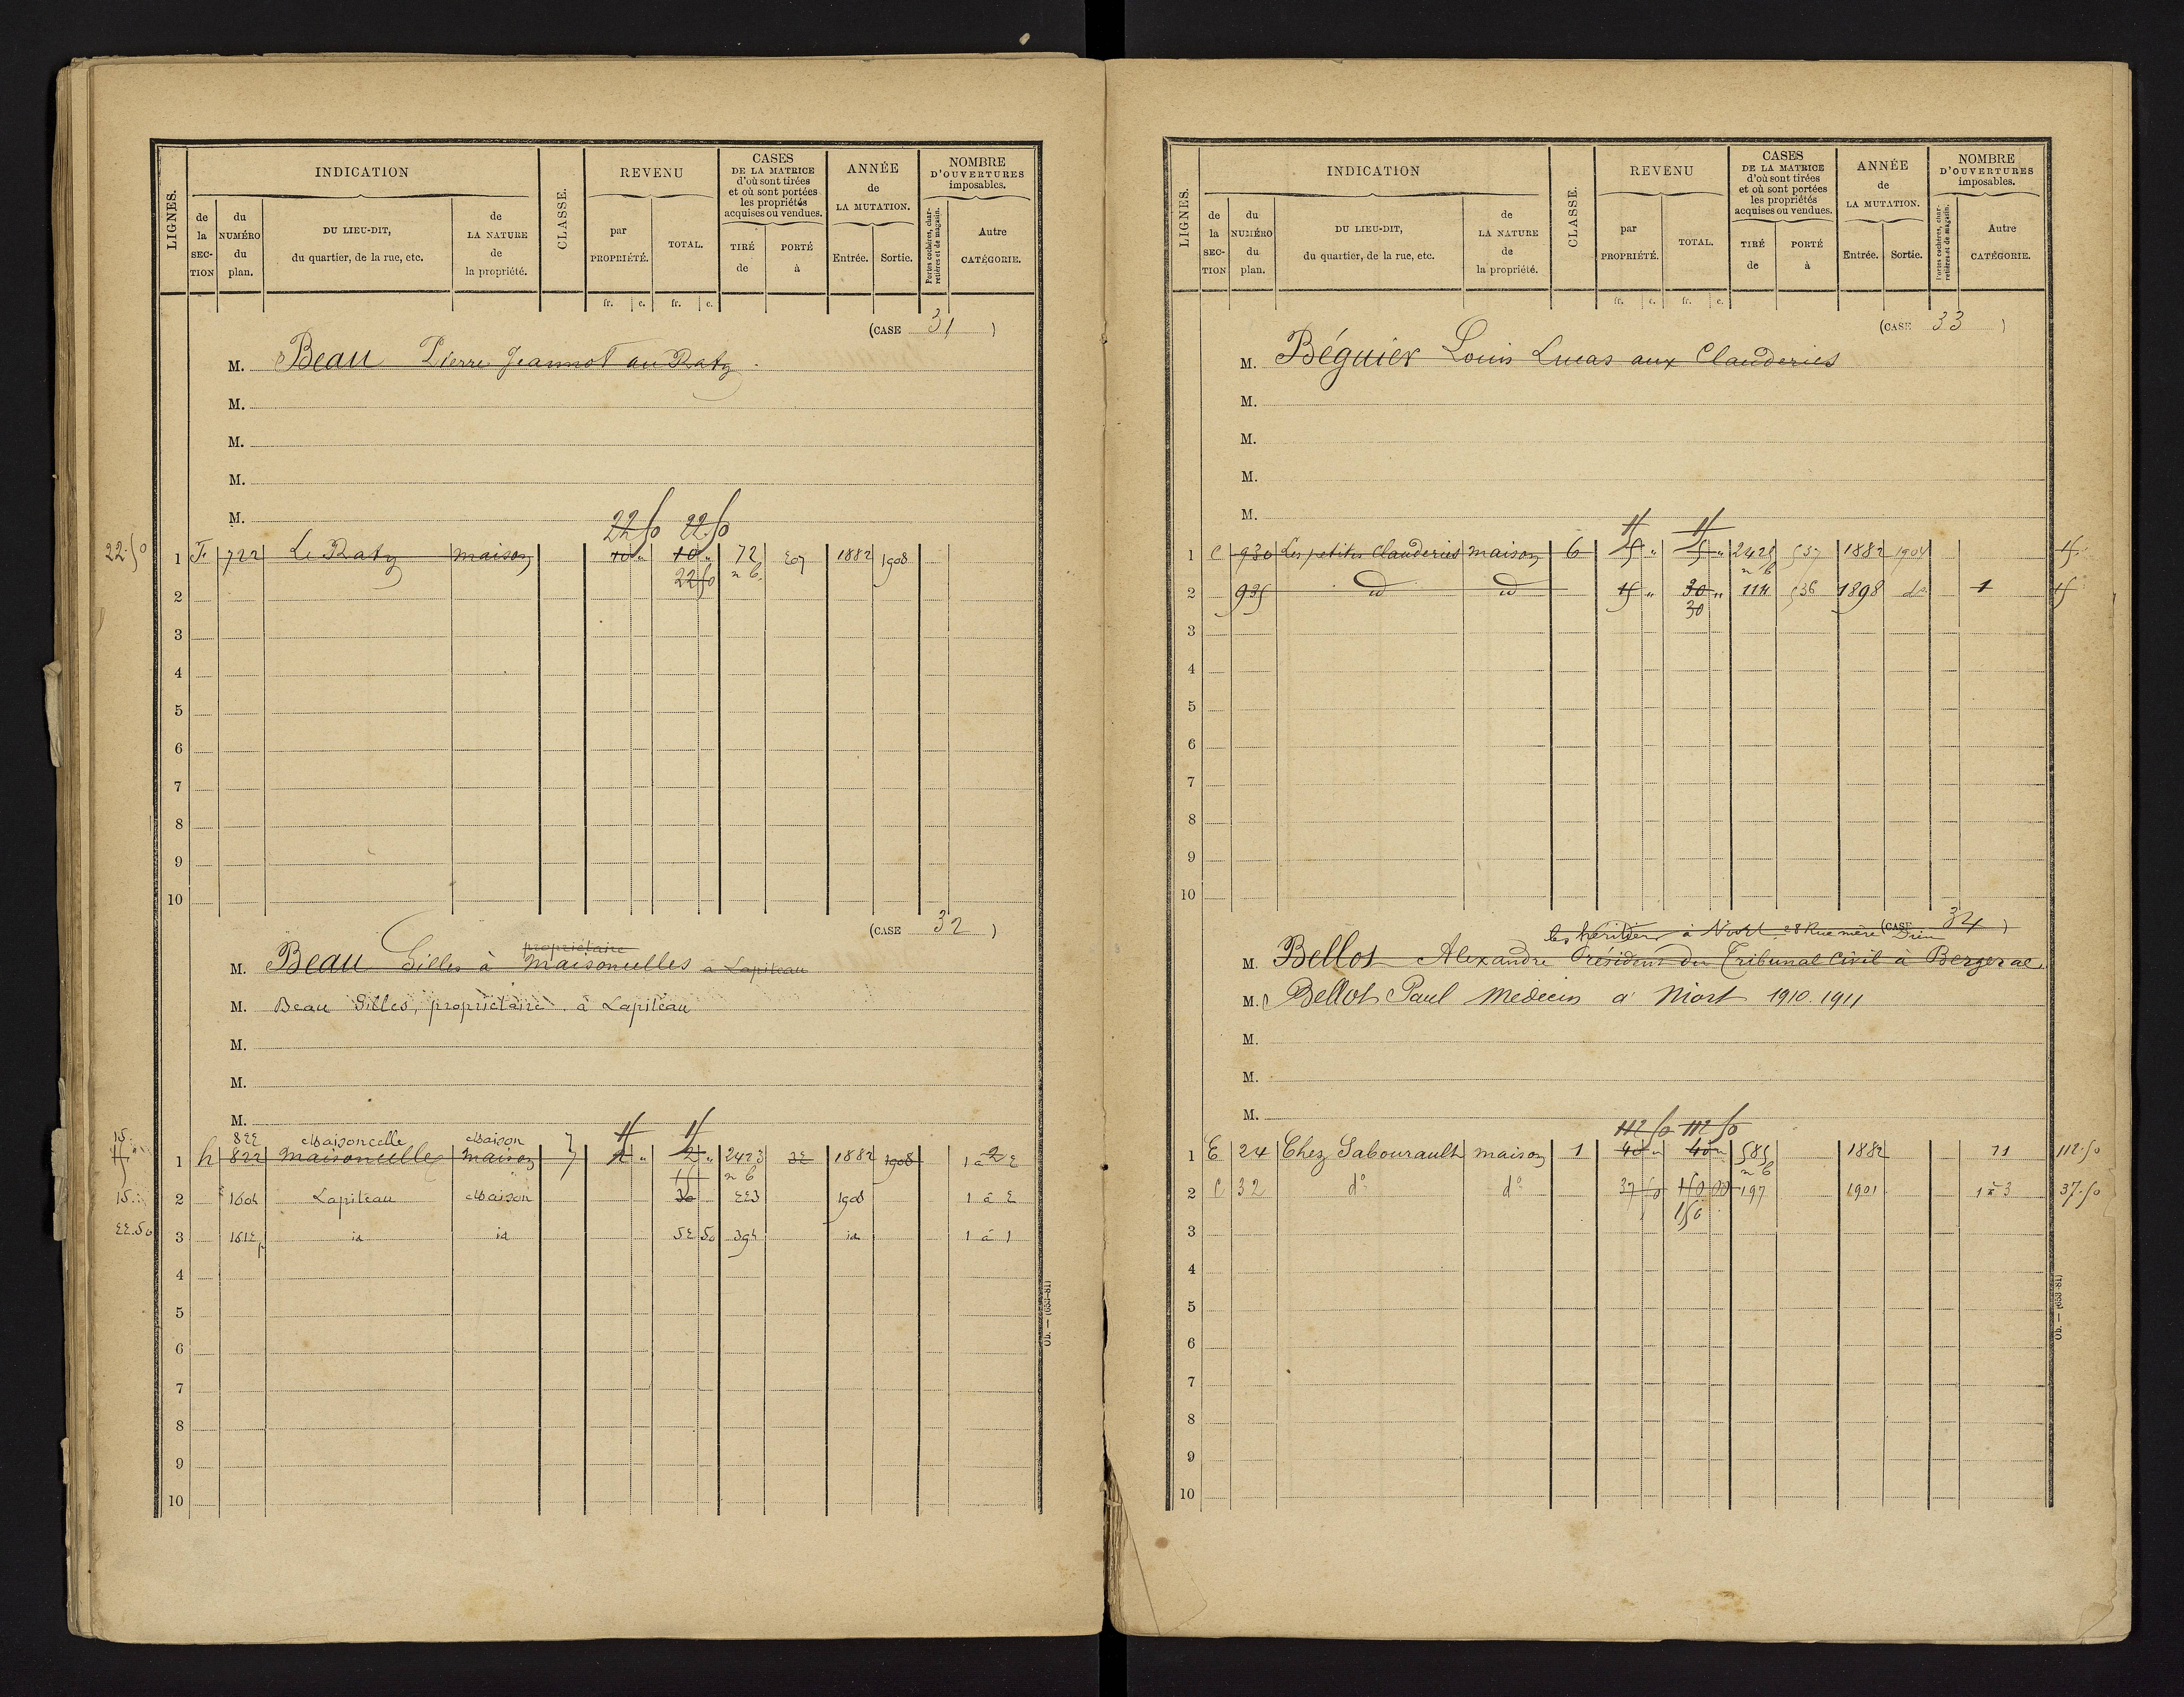 LIGNES. | INDICATION | CLASSE. | REVENU | CASES DE LA MATRICE d'où sont tirées et où sont portées les propriétés acquises ou vendues. | ANNÉE de LA MUTATION. | NOMBRE D'OUVERTURES imposables.
de la SECTION | du NUMÉRO du plan. | DU LIEU-DIT, du quartier, de la rue, etc. | de LA NATURE de la propriété. | par PROPRIÉTÉ. | TOTAL. | TIRÉ de | PORTÉ à | Entrée. | Sortie. | Portes cochères, charretières et de magasin. | Autre CATÉGORIE.
fr. c. fr. c.
(CASE 31)
M. Beau Pierre Jeannot au Raty
M.
M.
M.
M.
22 50 22 50
22.50 1 F. 722 Le Raty maison 10 " 10 " 72 1882 1908
22 50 n 6
2
3
4
5
6
7
8
9
10
(CASE 32)
propriétaire
M. Beau Gilles à Maisoncelles à Lapiteau
M. Beau Gilles, propriétaire à Lapiteau
M.
M.
M.
822 Maisoncelle Maison 7
1 h 822 Maisoncelle maison 7 2 " 2423 32 1882 1908 1 à 2
15 n 6
15 2 1604 Lapiteau Maison 30 223 1908 1 à 2
22.50 3 1612 p id id 52 50 394 id 1 à 1
4
5
6
7
8
9
10
Ob. — (653-81)
LIGNES. | INDICATION | CLASSE. | REVENU | CASES DE LA MATRICE d'où sont tirées et où sont portées les propriétés acquises ou vendues. | ANNÉE de LA MUTATION. | NOMBRE D'OUVERTURES imposables.
de la SECTION | du NUMÉRO du plan. | DU LIEU-DIT, du quartier, de la rue, etc. | de LA NATURE de la propriété. | par PROPRIÉTÉ. | TOTAL. | TIRÉ de | PORTÉ à | Entrée. | Sortie. | Portes cochères, charretières et de magasin. | Autre CATÉGORIE.
fr. c. fr. c.
(CASE 33)
M. Béguier Louis Lucas aux Clauderies
M.
M.
M.
M.
15 15
1 C 930 Les petites Clauderies maison 6 5 " 5 " 2425 537 1882 1904 15
n 6
2 935 id id 15 " 30 " 114 536 1898 do 1 15
30
3
4
5
6
7
8
9
10
(CASE 34)
les héritiers à Niort 28 Rue mère Dieu
M. Bellot Alexandre Président du Tribunal Civil à Bergerac
M. Bellot Paul Médecin à Niort 1910.1911
M.
M.
M.
112 50 112 50
1 E 24 Chez Sabourault maison 1 40 " 40 " 585 1882 11 112.50
n 6
2 C 32 d° d° 37 50 150 00 197 1901 1 à 3 37.50
150
3
4
5
6
7
8
9
10
Ob. — (653-81)